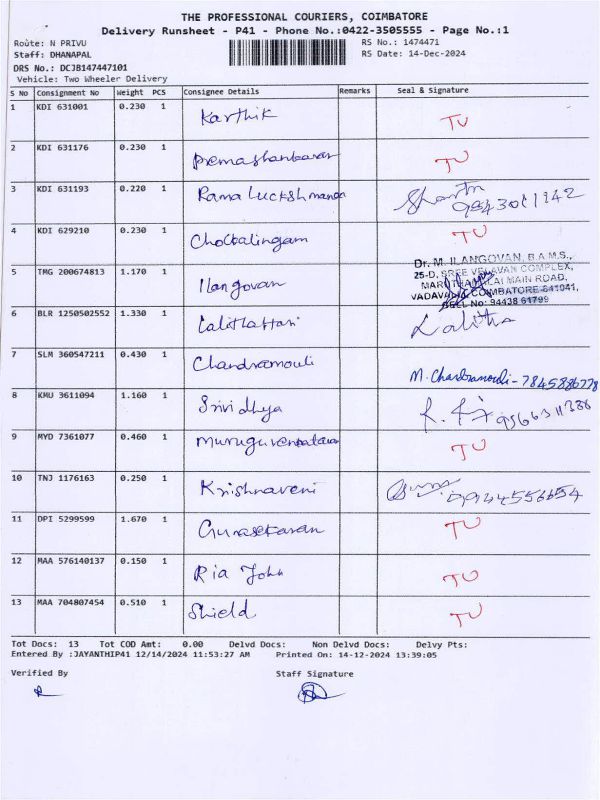 THE PROFESSIONAL COURIERS, COIMBATORE
Delivery Runsheet - P41 - Phone No.:0422-3505555 - Page No.:1
Route: N PRIVU RS No.: 1474471
Staff: DHANAPAL RS Date: 14-Dec-2024
DRS No.: DCJB147447101
Vehicle: Two Wheeler Delivery
S No Consignment No Weight PCS Consignee Details Remarks Seal & Signature
1 KDI 631001 0.230 1 Karthik TU
2 KDI 631176 0.230 1 Premashankaran TU
3 KDI 631193 0.220 1 Rama Luckshmanan
4 KDI 629210 0.230 1 Chockalingam TU
Dr. M. ILANGOVAN, B.A.M.S.,
25-D, SREE VELAVAN COMPLEX,
MARUTHAMALAI MAIN ROAD,
VADAVALLI, COIMBATORE-641041,
CELL No: 94438 61799
5 TMG 200674813 1.170 1 Ilangovan
6 BLR 1250502552 1.330 1 Lalitha Lalitha
7 SLM 360547211 0.430 1 Chandramouli M. Chandramouli - 7845886778
8 KMU 3611094 1.160 1 Srividhya 9566311386
9 MYD 7361077 0.460 1 TU
10 TNJ 1176163 0.250 1 Krishnaveni 9944556654
11 DPI 5299599 1.670 1 Gunasekaran TU
12 MAA 576140137 0.150 1 Ria John TU
13 MAA 704807454 0.510 1 Shield TU
Tot Docs: 13 Tot COD Amt: 0.00 Delvd Docs: Non Delvd Docs: Delvy Pts:
Entered By :JAYANTHIP41 12/14/2024 11:53:27 AM Printed On: 14-12-2024 13:39:05
Verified By Staff Signature